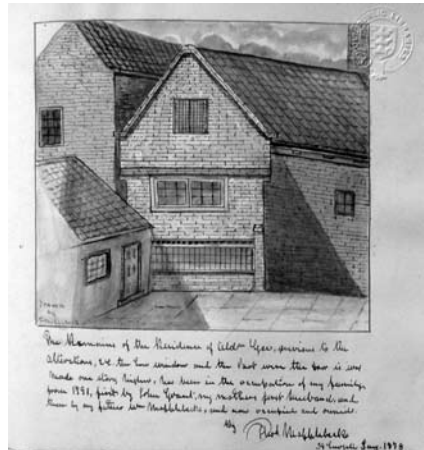 Drawn
by
The Remains of the Residence of Aldn Uger, previous to the
alterations, the low window and the Part were the door is was
made one story higher, has been in the occupation of my family
from 1791, first by John Grant, my mothers first husband, and
then by my father Wm Mapplebeck, and now occupied and owned
By Mapplebeck
June 1878